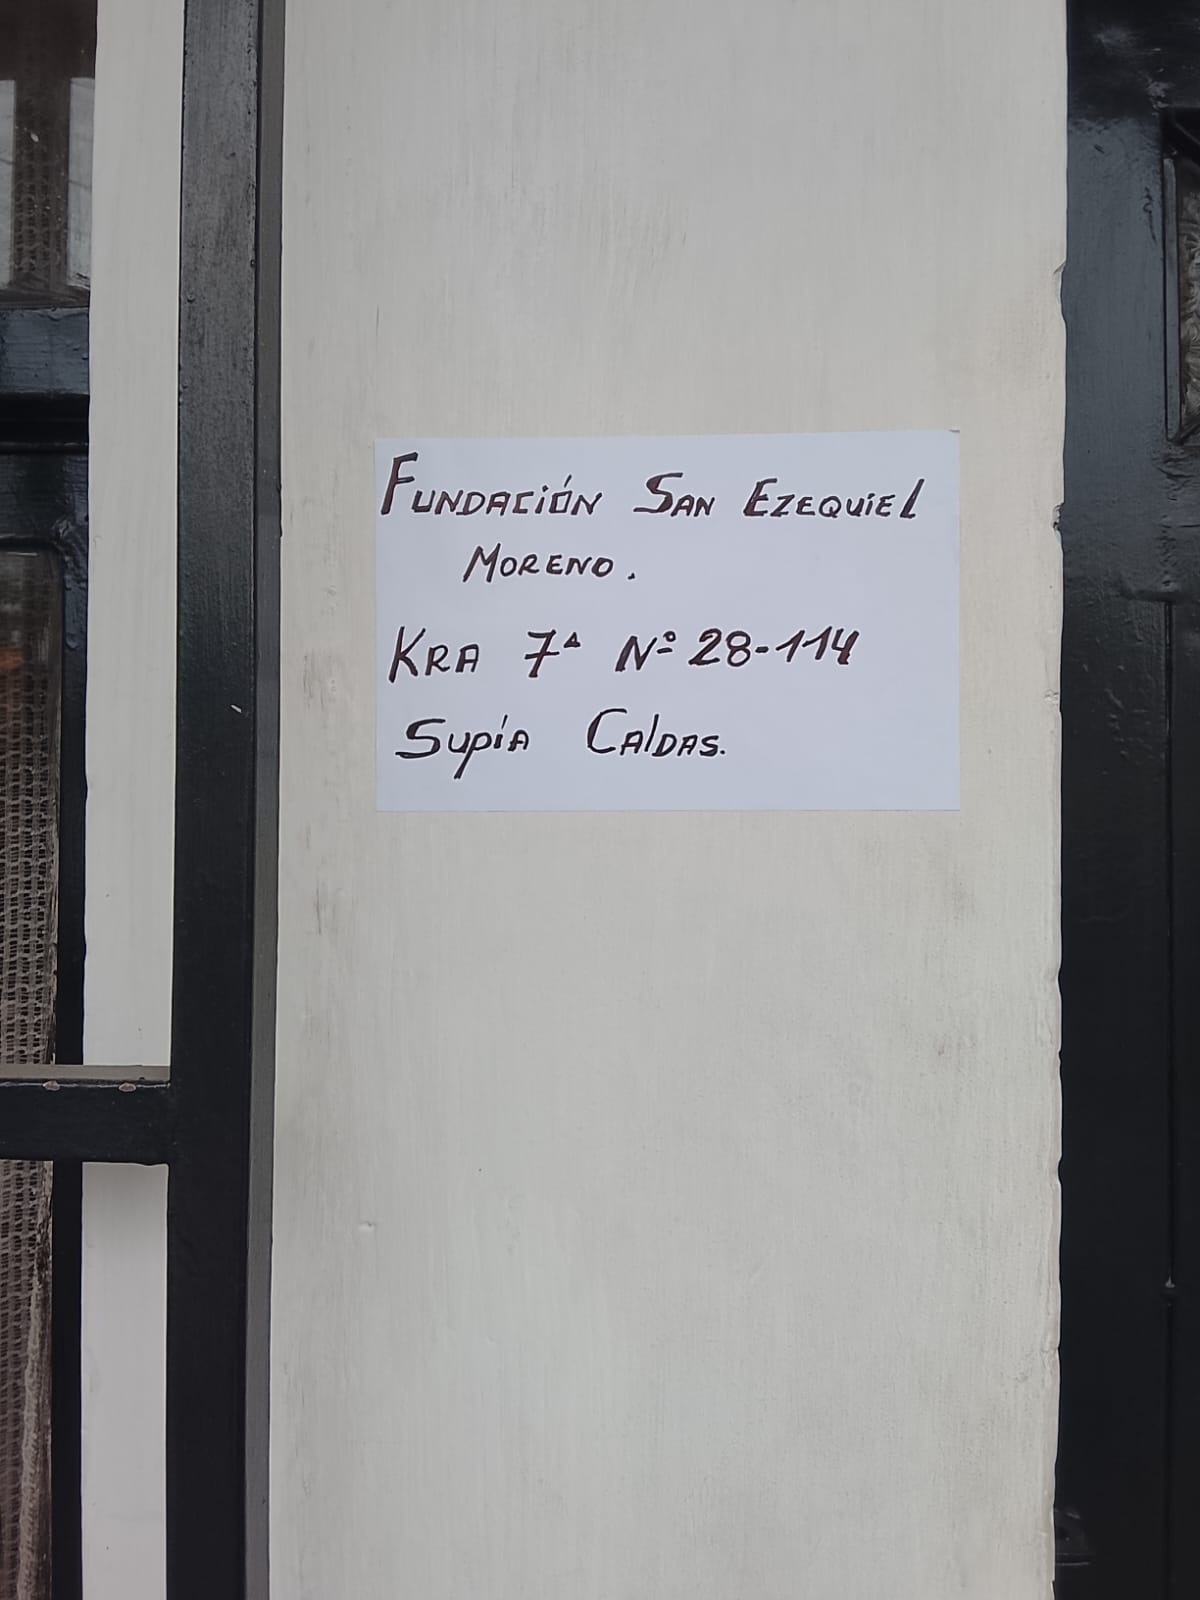 Fundación San Ezequiel
Moreno.
Kra 7ª Nº 28-114
Supía Caldas.